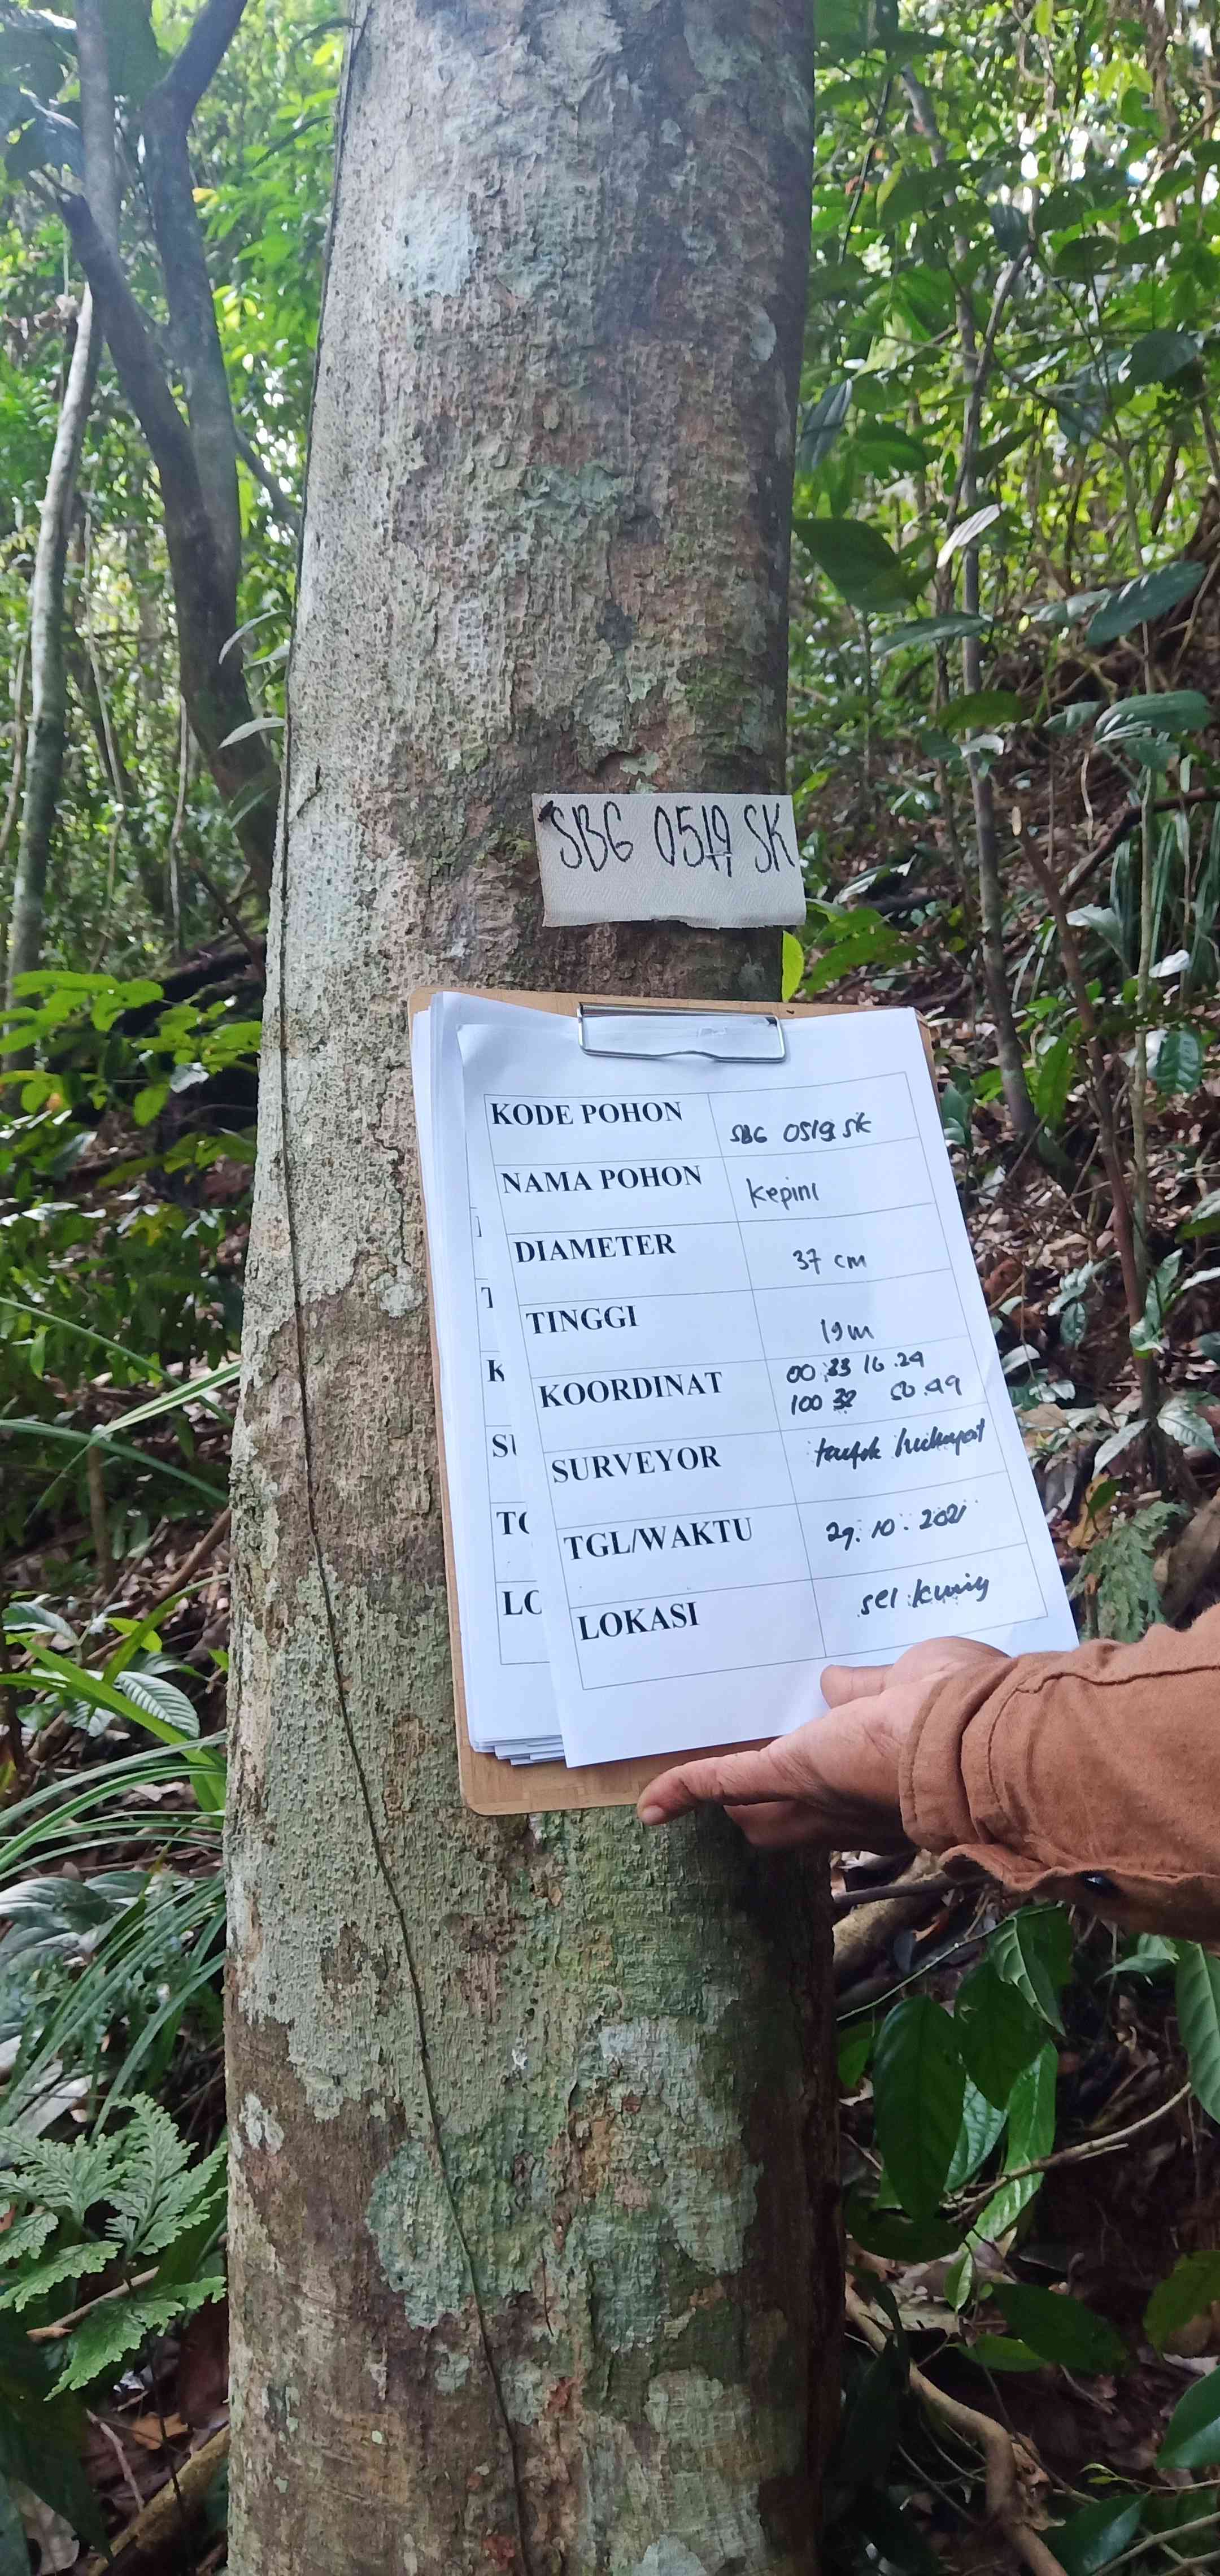 SBG 0519 SK
KODE POHON SBG 0519 SK
NAMA POHON Kepini
DIAMETER 37 cm
TINGGI 19 m
KOORDINAT 00 33 16.29
100 32 50.49
SURVEYOR taufik hidayat
TGL/WAKTU 29.10.2021
LOKASI sei kuning
K
LO